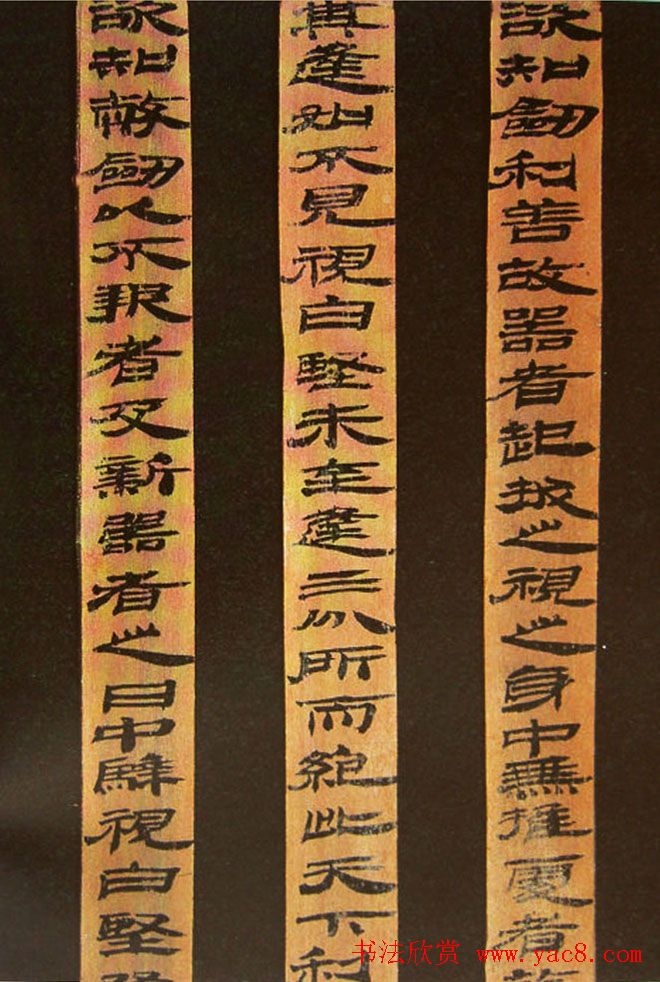 欲知劍利善故器者起拔之視之身中無推處者故
其逢如不見視白堅未至逢三分所而絕此天下利
欲知敝劍以不報者及新器者之日中騂視白堅
书法欣赏 www.yac8.com